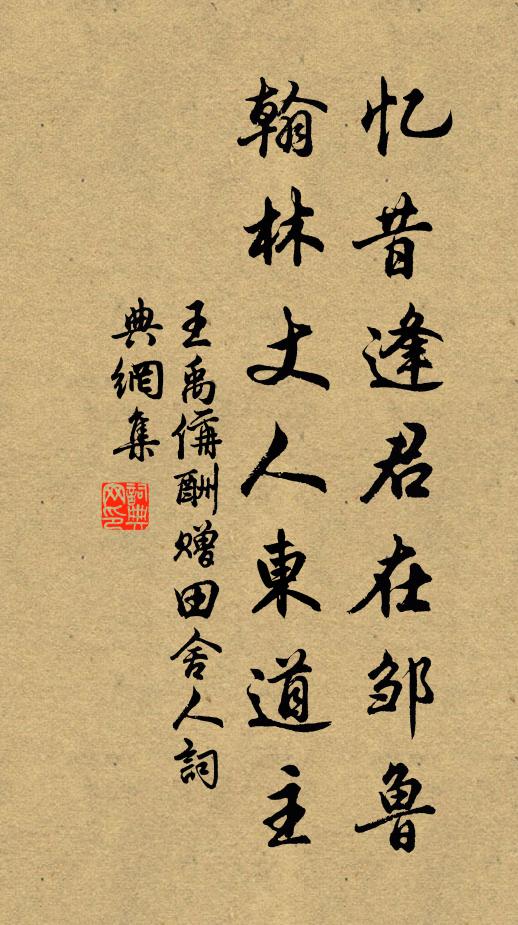 忆昔逢君在邹鲁
翰林丈人東道主
王禹偁酬赠田舍人詞
典網集
詞典网印